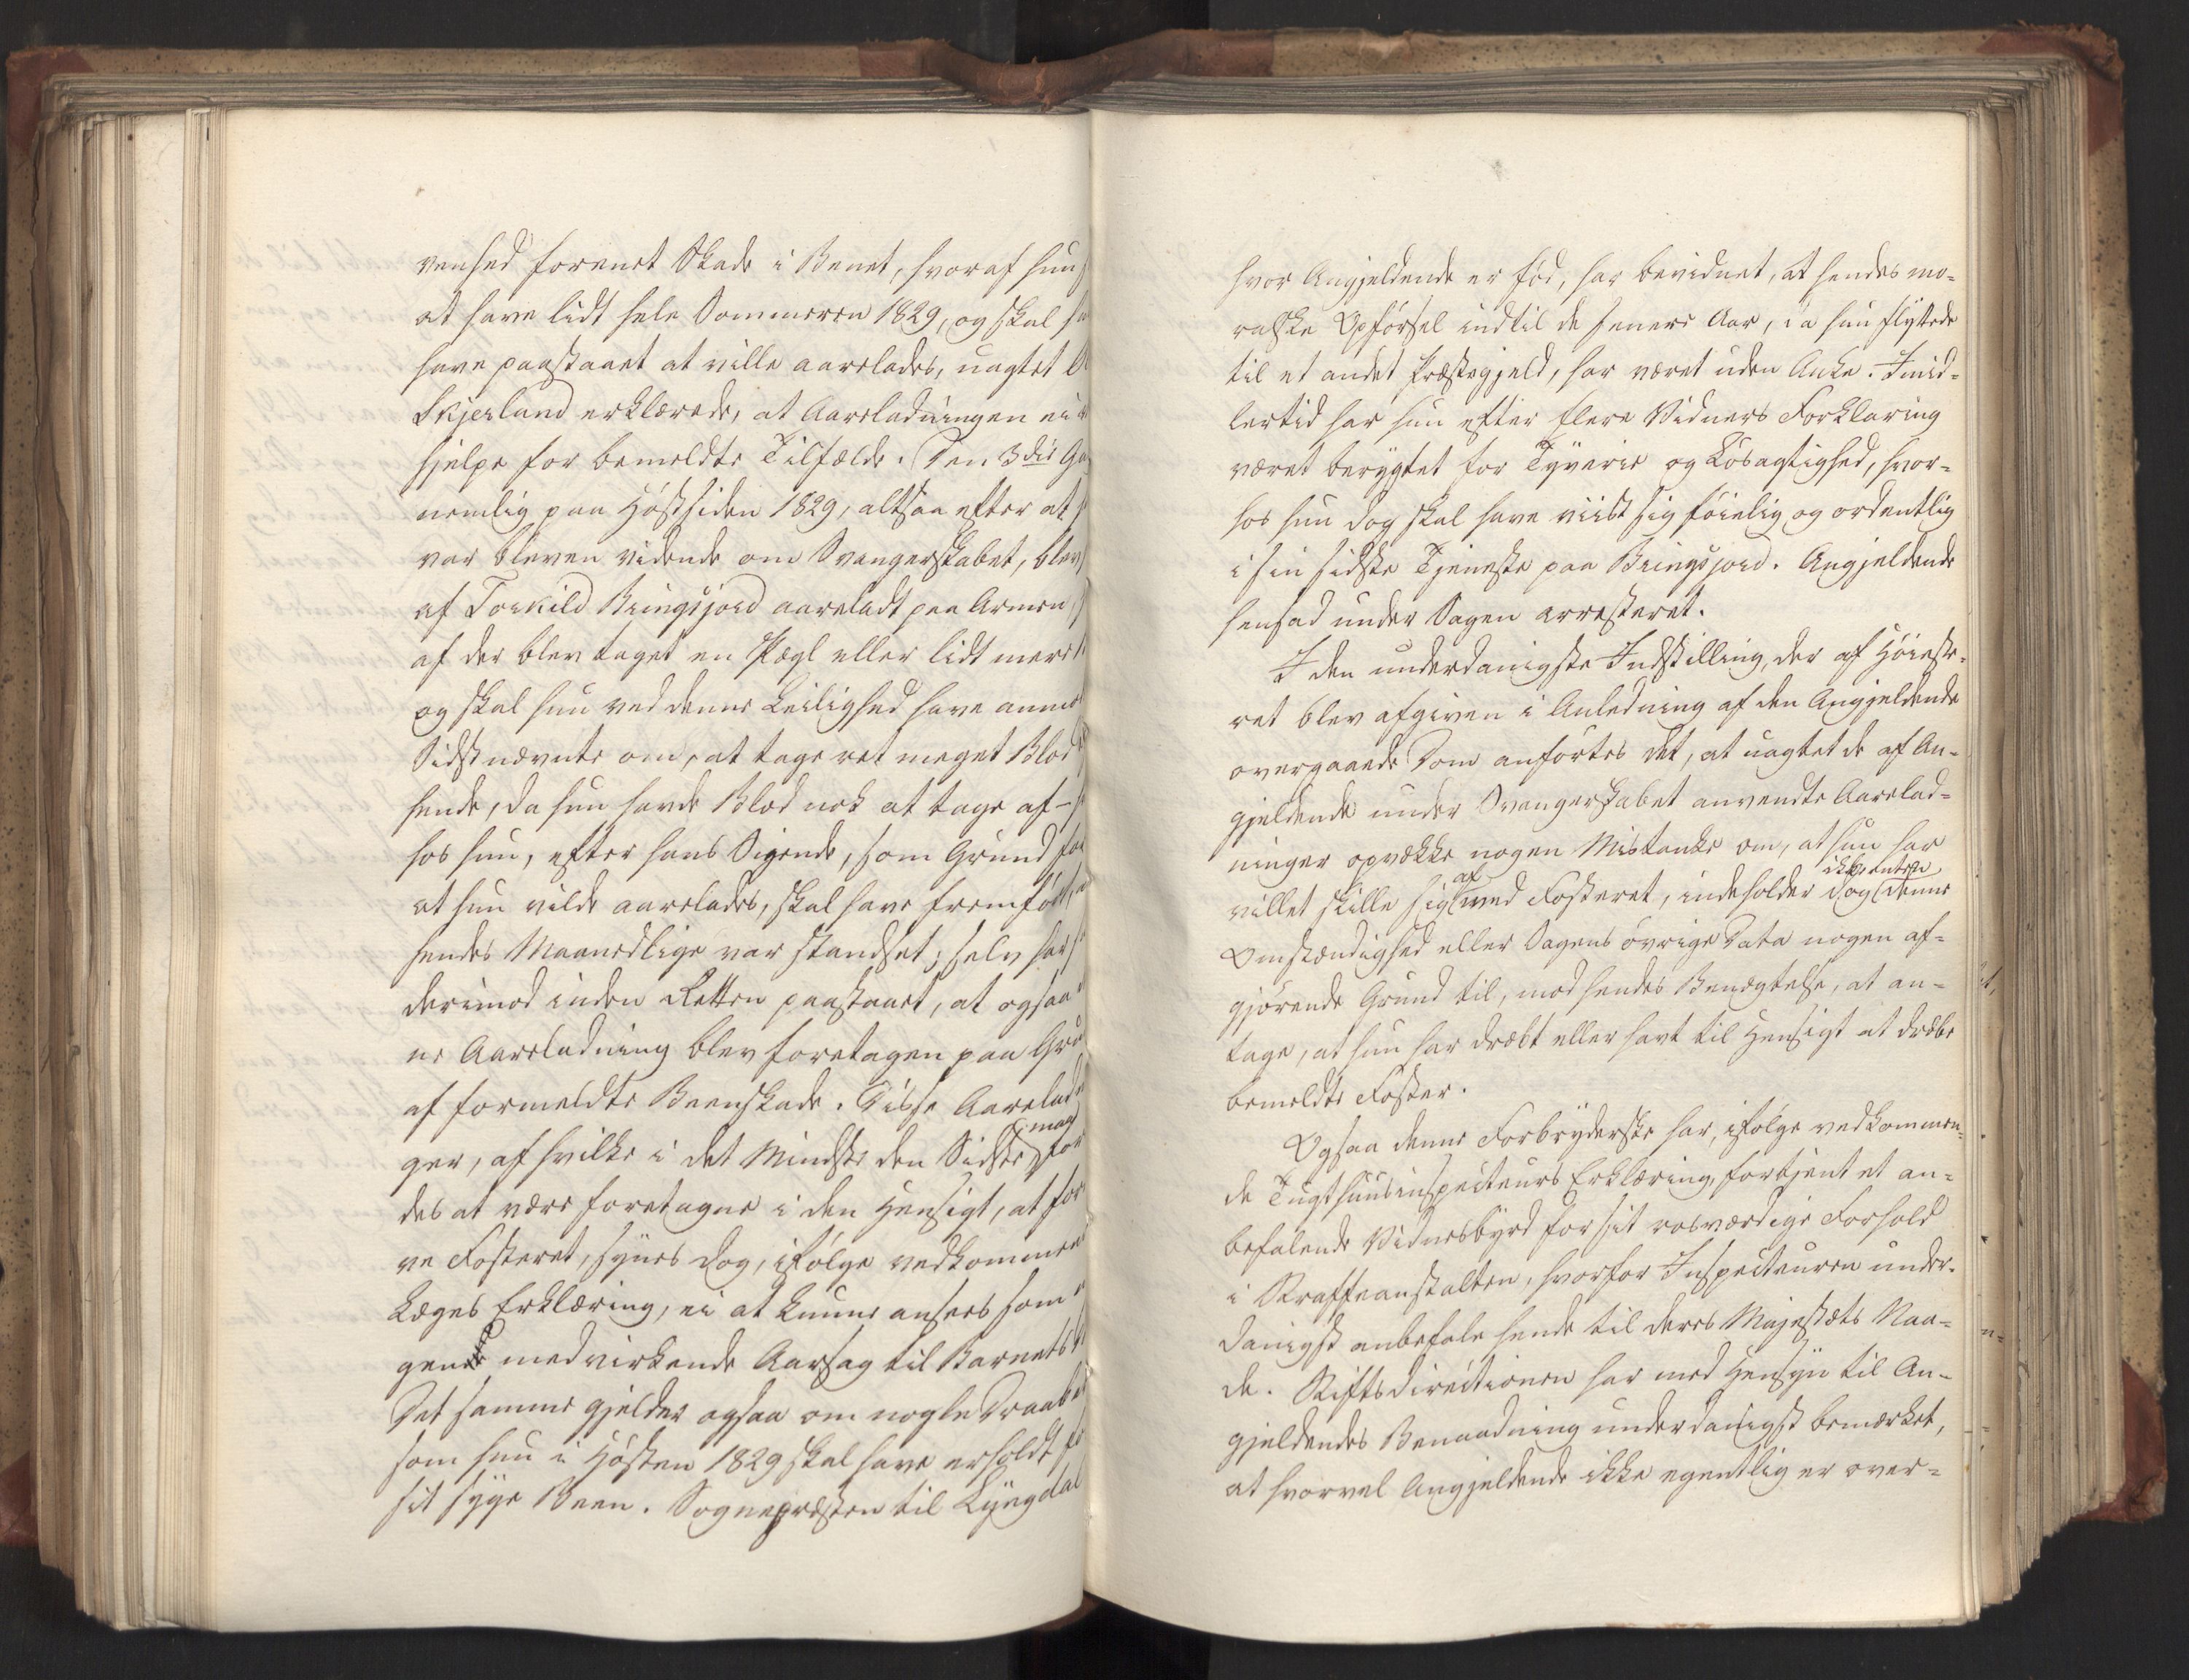 venhed forenet Skade i Benet, hvoraf hun
at have lidt hele Sommeren 1829, og skal
have paastaaet at ville aarelades, uagtet
Skjerland erklærede, at Aareladningen ei
hjelpe for bemeldte Tilfælde. Den 3die
nemlig paa Høstsiden 1829, altsaa efter at
var bleven vidende om Svangerskabet, blev
af Torkild Bringsjord aareladt paa Armen
af der blev taget en Pægl eller lidt mere
og skal hun ved denne Leilighed have anmo
Sidstnævnte om, at tage ret meget Blod
hende, da hun havde Blod nok at tage af –
hos hun, efter hans Sigende, som Grund for
at hun vilde aarelades, skal have fremført,
hendes Maanedlige var standset; selv har
derimod inden Retten paastaaet, at ogsaa
ne Aareladning blev foretagen paa Gru
af formeldte Beenskade. Disse Aarelad
ger, af hvilke i det Mindste den Sidste maa for
des at være foretagne i den Hensigt, at for
ve Fosteret, synes dog, ifølge vedkommen
Læges Erklæring, ei at kunne ansees som
gen medvirkende Aarsag til Barnets
Det samme gjelder ogsaa om nogle Draaber
som hun i Høsten 1829 skal have erholdt
sit syge Been. Sognepræsten til Lyngdal
hvor Angjeldende er fød, har bevidnet, at hendes mo-
ralske Opførsel indtil de senere Aar, da hun flyttede
til et andet Præstegjeld, har været uden Anke. Imid-
lertid har hun efter flere Vidners Forklaring
været berygtet for Tyverie og Løsagtighed, hvor-
hos hun dog skal have viist sig føielig og ordentlig
i sin sidste Tjeneste paa Bringsjord. Angjeldende
hensad under Sagen arresteret.
I den underdanigste Indstilling, der af Høieste-
ret blev afgiven i Anledning af den Angjeldende
overgaaede Dom anførtes det, at uagtet de af An-
gjeldende under Svangerskabet anvendte Aarelad-
ninger opvække nogen Mistanke om, at hun har
villet skille sig af med Fosteret, indeholder dog ikke enten denne
Omstændighed eller Sagens øvrige Data nogen af-
gjørende Grund til, mod hendes Benægtelse, at an-
tage, at hun har dræbt eller havt til Hensigt at dræbe
bemeldte Foster.
Ogsaa denne Forbryderske har, ifølge vedkommen-
de Tugthuusinspecteurs Erklæring, fortjent et an-
befalende Vidnesbyrd for sit rosværdige Forhold
i Straffeanstalten, hvorfor Inspecteuren under-
danigst anbefale hende til Deres Majestæts Naa-
de. Stiftsdirectionen har med Hensyn til An-
gjeldendes Benaadning underdanigst bemærket,
at hvorvel Angjeldende ikke egentlig er over-